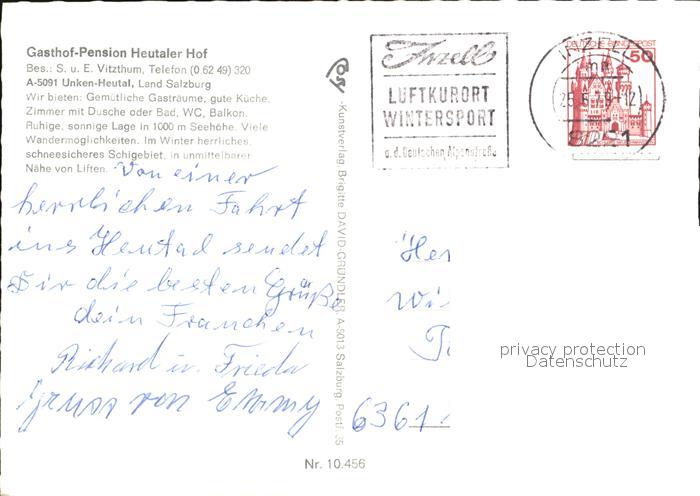 Gasthof-Pension Heutaler Hof
Bes.: S. u. E. Vitzthum, Telefon (0 62 49) 320
A-5091 Unken-Heutal, Land Salzburg
Wir bieten: Gemütliche Gasträume, gute Küche,
Zimmer mit Dusche oder Bad, WC, Balkon.
Ruhige, sonnige Lage in 1000 m Seehöhe. Viele
Wandermöglichkeiten. Im Winter herrliches,
schneesicheres Schigebiet, in unmittelbarer
Nähe von Liften.
Von einer
herrlichen Fahrt
ins Heutal sendet
Dir die besten Grüße
dein Franchen
Richard u. Frieda
Gruss von Emmy
Kunstverlag Brigitte DAVID-GRÜNDLER, A-5013 Salzburg, Postf. 35
Nr. 10.456
Inzell
LUFTKURORT
WINTERSPORT
a.d. Deutschen Alpenstraße
INZELL
DEUTSCHE BUNDESPOST
50
8221
Her
Wi
6361
privacy protection
Datenschutz